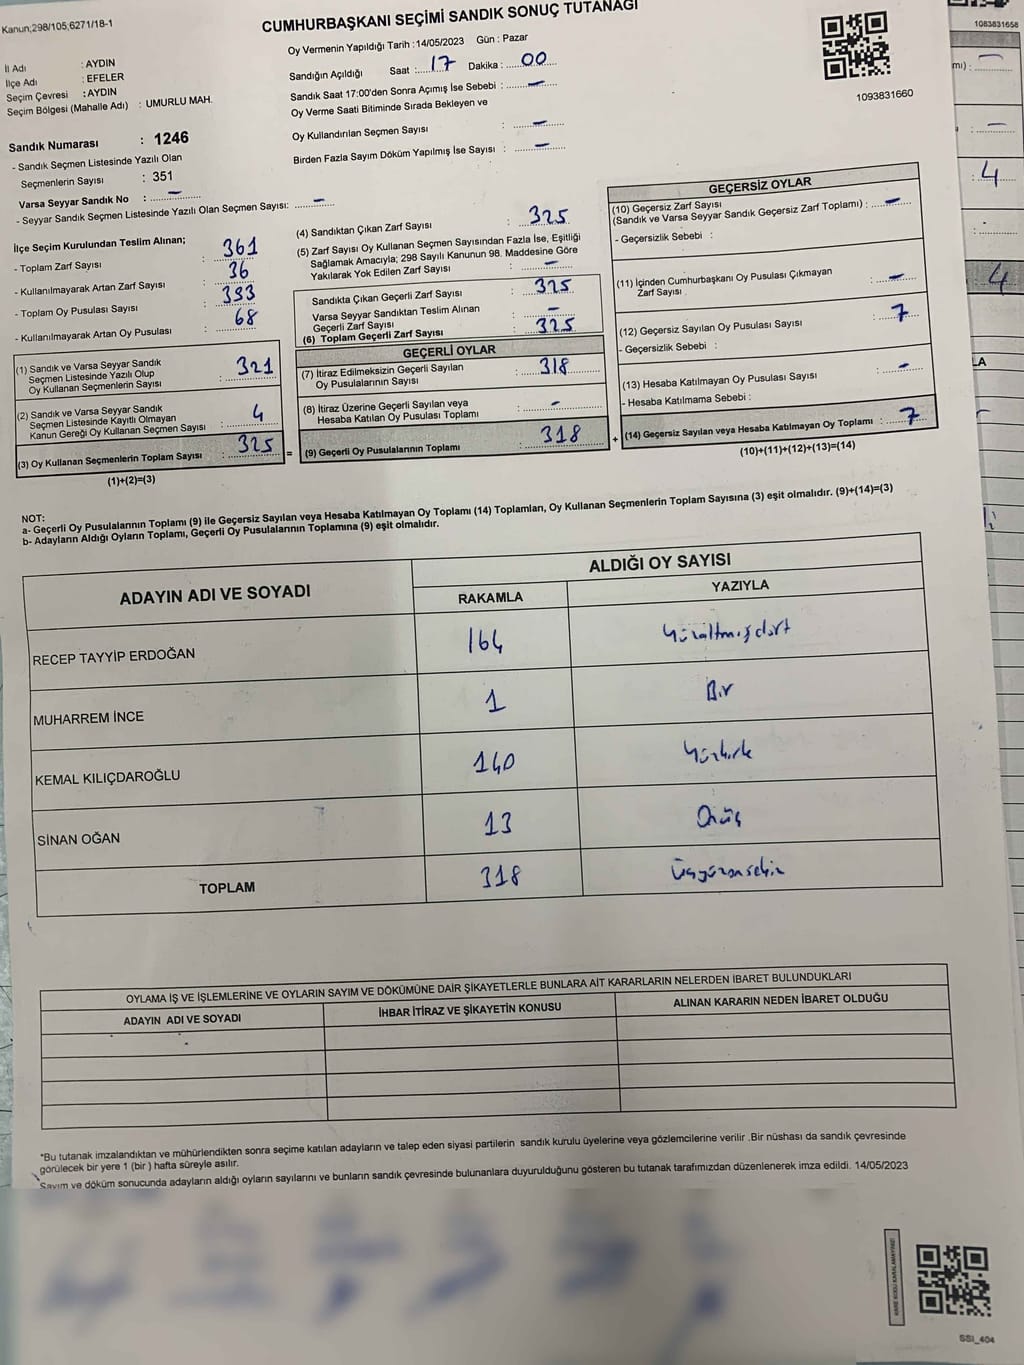 Kanun;298/105;6271/18-1
CUMHURBAŞKANI SEÇİMİ SANDIK SONUÇ TUTANAĞI
Oy Vermenin Yapıldığı Tarih :14/05/2023 Gün : Pazar
1083831658
İl Adı : AYDIN
İlçe Adı : EFELER
Seçim Çevresi : AYDIN
Seçim Bölgesi (Mahalle Adı) : UMURLU MAH.
Sandığın Açıldığı Saat : 17 Dakika : 00
Sandık Saat 17:00'den Sonra Açımış İse Sebebi : –
Oy Verme Saati Bitiminde Sırada Bekleyen ve
Oy Kullandırılan Seçmen Sayısı : –
Birden Fazla Sayım Döküm Yapılmış İse Sayısı : –
1093831660
Sandık Numarası : 1246
- Sandık Seçmen Listesinde Yazılı Olan
Seçmenlerin Sayısı : 351
Varsa Seyyar Sandık No : –
- Seyyar Sandık Seçmen Listesinde Yazılı Olan Seçmen Sayısı: –
İlçe Seçim Kurulundan Teslim Alınan;
- Toplam Zarf Sayısı : 361
- Kullanılmayarak Artan Zarf Sayısı : 36
- Toplam Oy Pusulası Sayısı : 393
- Kullanılmayarak Artan Oy Pusulası : 68
(1) Sandık ve Varsa Seyyar Sandık
Seçmen Listesinde Yazılı Olup
Oy Kullanan Seçmenlerin Sayısı : 321
(2) Sandık ve Varsa Seyyar Sandık
Seçmen Listesinde Kayıtlı Olmayan
Kanun Gereği Oy Kullanan Seçmen Sayısı : 4
(3) Oy Kullanan Seçmenlerin Toplam Sayısı : 325
(1)+(2)=(3)
=
(4) Sandıktan Çıkan Zarf Sayısı : 325
(5) Zarf Sayısı Oy Kullanan Seçmen Sayısından Fazla İse, Eşitliği
Sağlamak Amacıyla; 298 Sayılı Kanunun 98. Maddesine Göre
Yakılarak Yok Edilen Zarf Sayısı : –
Sandıkta Çıkan Geçerli Zarf Sayısı : 325
Varsa Seyyar Sandıktan Teslim Alınan
Geçerli Zarf Sayısı : –
(6) Toplam Geçerli Zarf Sayısı : 325
GEÇERLİ OYLAR
(7) İtiraz Edilmeksizin Geçerli Sayılan
Oy Pusulalarının Sayısı : 318
(8) İtiraz Üzerine Geçerli Sayılan veya
Hesaba Katılan Oy Pusulası Toplamı : –
(9) Geçerli Oy Pusulalarının Toplamı : 318
+
GEÇERSİZ OYLAR
(10) Geçersiz Zarf Sayısı
(Sandık ve Varsa Seyyar Sandık Geçersiz Zarf Toplamı) : –
- Geçersizlik Sebebi :
(11) İçinden Cumhurbaşkanı Oy Pusulası Çıkmayan
Zarf Sayısı : –
(12) Geçersiz Sayılan Oy Pusulası Sayısı : 7
- Geçersizlik Sebebi :
(13) Hesaba Katılmayan Oy Pusulası Sayısı : –
- Hesaba Katılmama Sebebi :
(14) Geçersiz Sayılan veya Hesaba Katılmayan Oy Toplamı : 7
(10)+(11)+(12)+(13)=(14)
4
4
NOT:
a- Geçerli Oy Pusulalarının Toplamı (9) ile Geçersiz Sayılan veya Hesaba Katılmayan Oy Toplamı (14) Toplamları, Oy Kullanan Seçmenlerin Toplam Sayısına (3) eşit olmalıdır. (9)+(14)=(3)
b- Adayların Aldığı Oyların Toplamı, Geçerli Oy Pusulalarının Toplamına (9) eşit olmalıdır.
ADAYIN ADI VE SOYADI
ALDIĞI OY SAYISI
RAKAMLA YAZIYLA
RECEP TAYYİP ERDOĞAN 164 Yüzaltmışdört
MUHARREM İNCE 1 Bir
KEMAL KILIÇDAROĞLU 140 Yüzkırk
SİNAN OĞAN 13 Onüç
TOPLAM 318 Üçyüzonsekiz
OYLAMA İŞ VE İŞLEMLERİNE VE OYLARIN SAYIM VE DÖKÜMÜNE DAİR ŞİKAYETLERLE BUNLARA AİT KARARLARIN NELERDEN İBARET BULUNDUKLARI
ADAYIN ADI VE SOYADI İHBAR İTİRAZ VE ŞİKAYETİN KONUSU ALINAN KARARIN NEDEN İBARET OLDUĞU
*Bu tutanak imzalandıktan ve mühürlendikten sonra seçime katılan adayların ve talep eden siyasi partilerin sandık kurulu üyelerine veya gözlemcilerine verilir .Bir nüshası da sandık çevresinde
görülecek bir yere 1 (bir ) hafta süreyle asılır.
Sayım ve döküm sonucunda adayların aldığı oyların sayılarını ve bunların sandık çevresinde bulunanlara duyurulduğunu gösteren bu tutanak tarafımızdan düzenlenerek imza edildi. 14/05/2023
KARE KODU KARALAMAYINIZ!
SSI_404